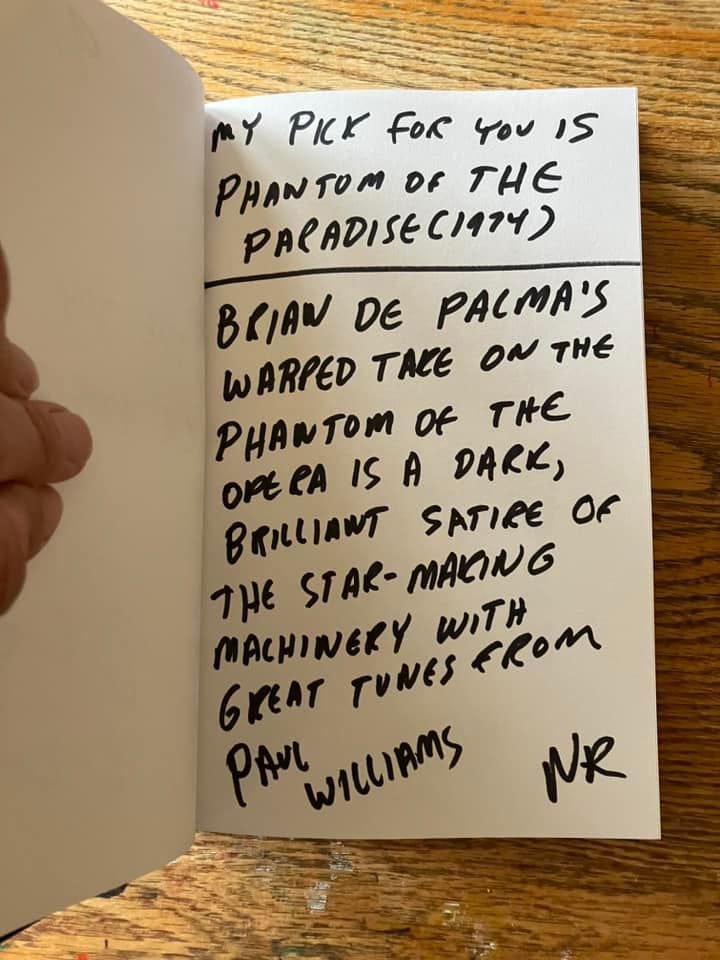 MY PICK FOR YOU IS
PHANTOM OF THE
PARADISE (1974)
BRIAN DE PALMA'S
WARPED TAKE ON THE
PHANTOM OF THE
OPERA IS A DARK,
BRILLIANT SATIRE OF
THE STAR-MAKING
MACHINERY WITH
GREAT TUNES FROM
PAUL
WILLIAMS NR